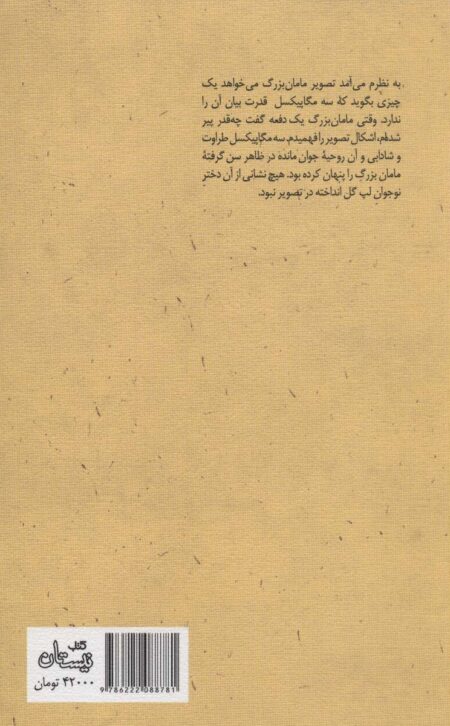 به نظرم می‌آمد تصویر مامان‌بزرگ می‌خواهد یک
چیزی بگوید که سه مگاپیکسل قدرت بیان آن را
ندارد. وقتی مامان‌بزرگ یک دفعه گفت چه‌قدر پیر
شده‌ام، اشکال تصویر را فهمیدم. سه مگاپیکسل طراوت
و شادابی و آن روحیهٔ جوان مانده در ظاهر سن گرفتهٔ
مامان بزرگ را پنهان کرده بود. هیچ نشانی از آن دختر
نوجوانِ لپ گل انداخته در تصویر نبود.
کتاب
نیستان
۴۲۰۰۰ تومان
9 786222 088781